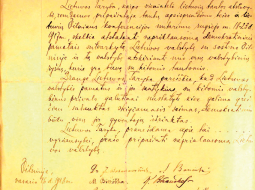 Lietuvos Taryba, kaipo vienintelė lietuvių tautos atstovy-
bė, remdamos pripažintąja tautų apsisprendimo teise ir lie-
tuvių Vilniaus konferencijos nutarimu rugsėjo mėn. 18-23 d.
1917 m., skelbia atstatanti nepriklausomą demokratiniais
pamatais sutvarkytą Lietuvos valstybę su sostine Vil-
niuje ir tą valstybę atskirianti nuo visų valstybinių
ryšių, kurie yra buvę su kitomis tautomis.
Drauge Lietuvos Taryba pareiškia, kad Lietuvos
valstybės pamatus ir jos santykius su kitomis valsty-
bėmis privalo galutinai nustatyti kiek galima grei-
čiau sušauktas steigiamasis seimas, demokratiniu
būdu visų jos gyventojų išrinktas.
Lietuvos Taryba, pranešdama apie tai
vyriausybei, prašo pripažinti nepriklausomą Lietu-
vos valstybę.
Vilniuje,
Dr. J. Basanavičius
M. Biržiška